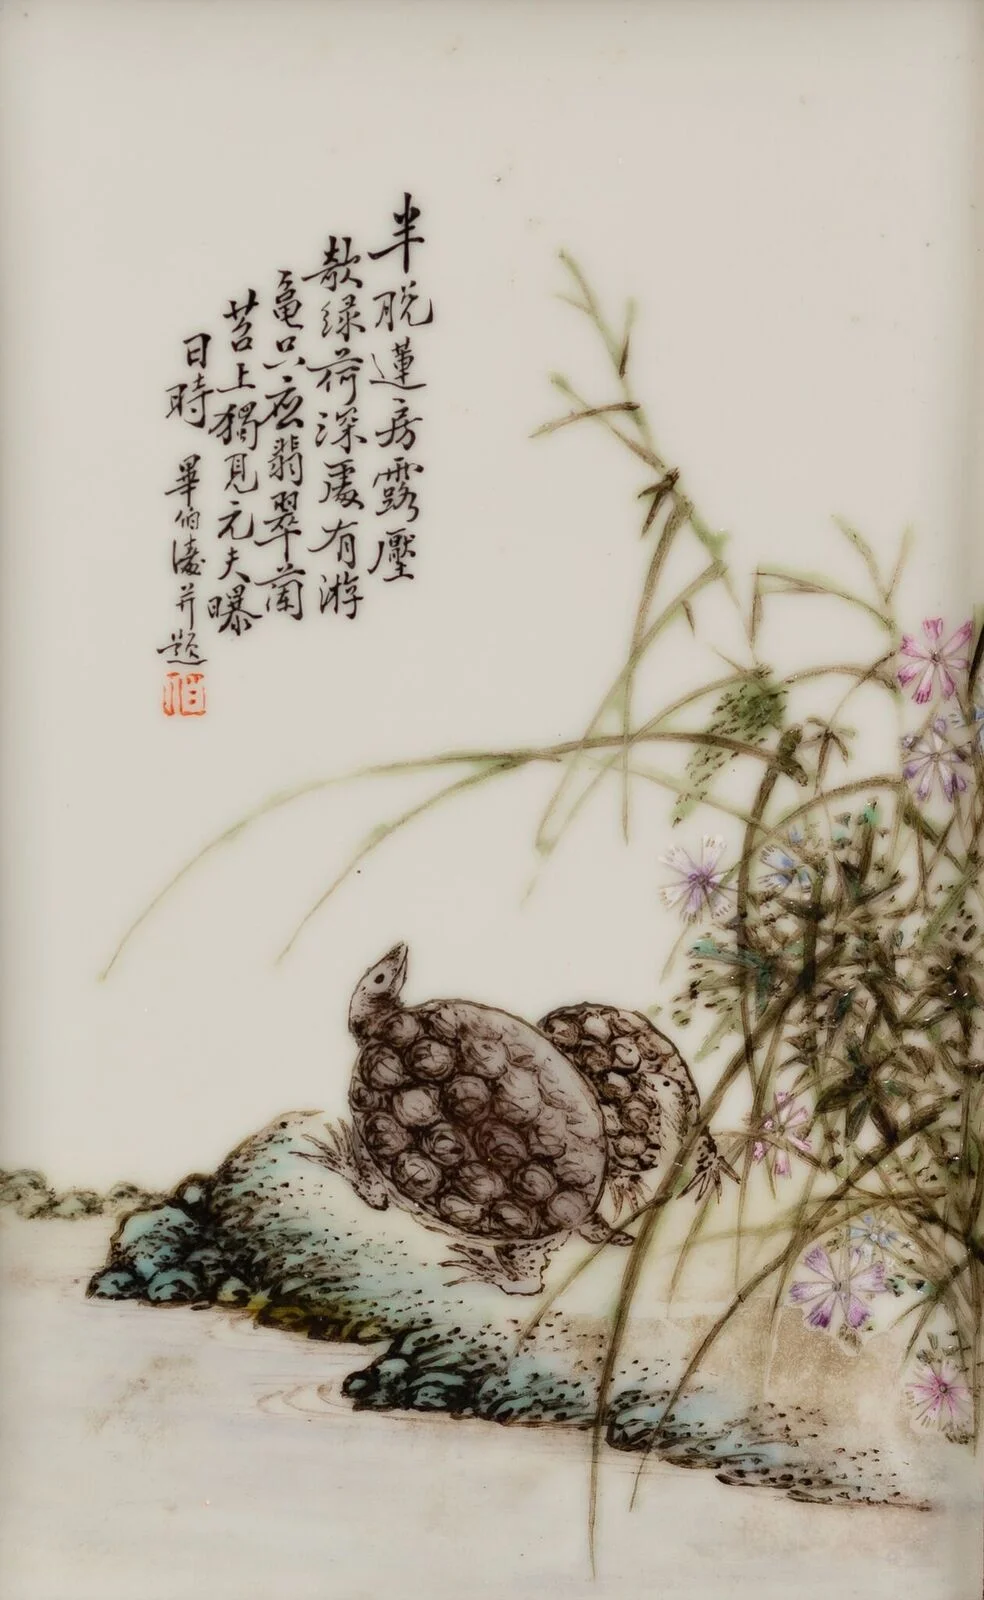 半脱蓮房露壓
欹緑荷深處有游
龜只應翡翠蘭
苕上獨見元夫曝
日時 畢伯濤并題